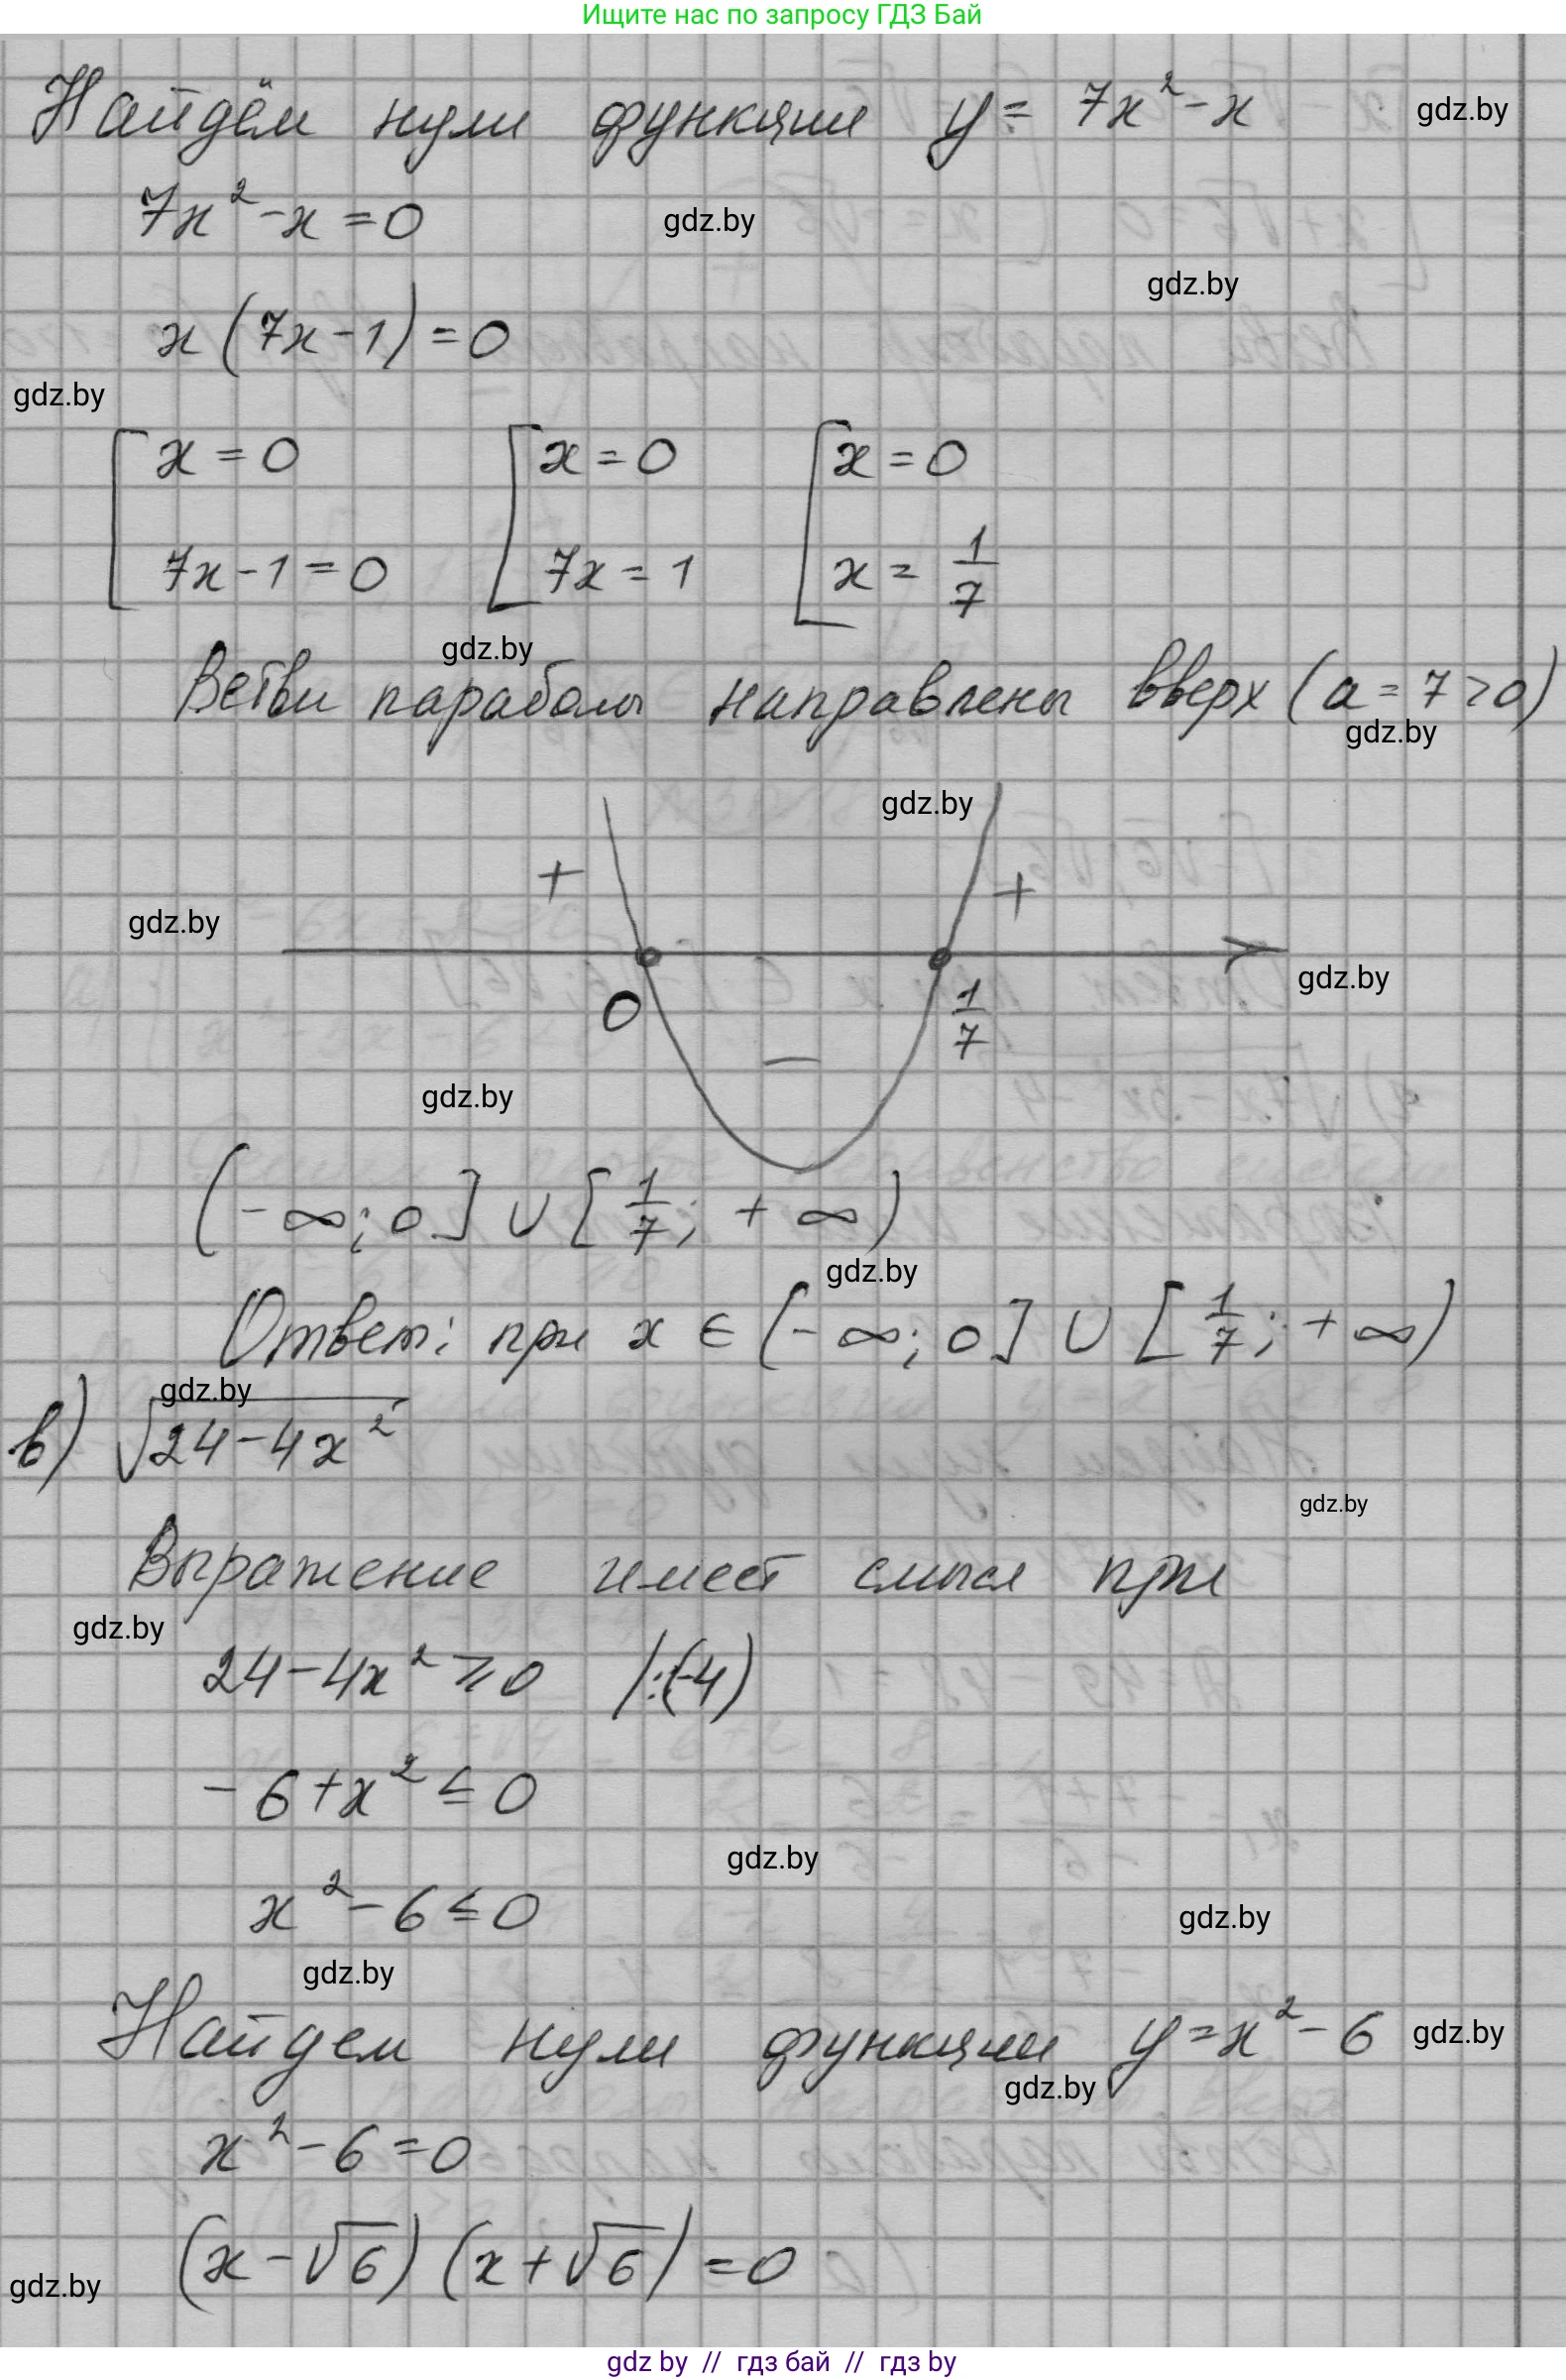 Ищите нас по запросу ГДЗ Бай
Найдём нули функции y = 7x² - x
gdz.by
7x² - x = 0
gdz.by
gdz.by
x (7x - 1) = 0
gdz.by
[ x = 0 [ x = 0 [ x = 0
7x - 1 = 0 7x = 1 x = 1/7
gdz.by
Ветви параболы направлены вверх (a = 7 > 0)
gdz.by
gdz.by
+ +
gdz.by
gdz.by
0 1/7
−
gdz.by
(-∞; 0] ∪ [1/7; +∞)
gdz.by
Ответ: при x ∈ (-∞; 0] ∪ [1/7; +∞)
gdz.by
в) √24 - 4x²
gdz.by
Выражение имеет смысл при
gdz.by
24 - 4x² ⩾ 0 /:(-4)
-6 + x² ≤ 0
gdz.by
x² - 6 ≤ 0
gdz.by
gdz.by
Найдем нули функции y = x² - 6
gdz.by
gdz.by
x² - 6 = 0
(x - √6) (x + √6) = 0
gdz.by
gdz by // гдз бай // гдз by